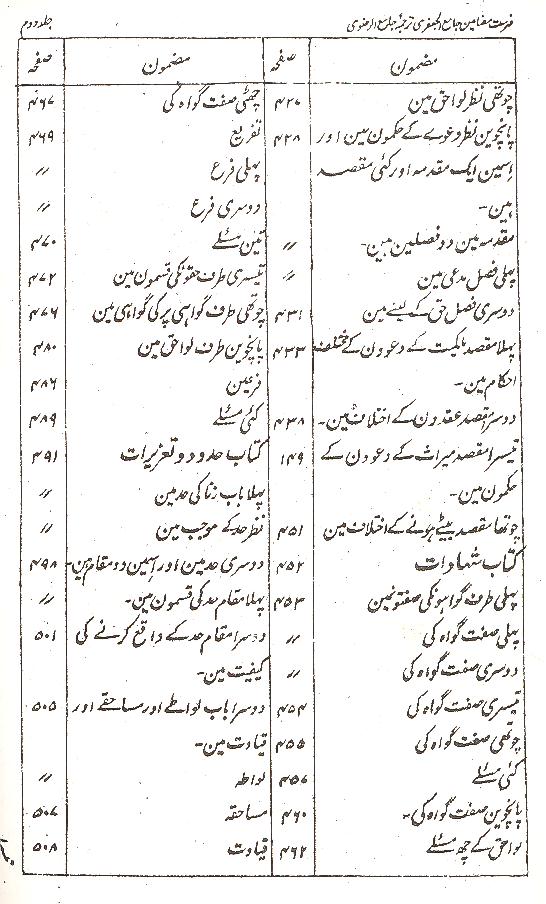 فہرست مضامین جامع الجعفری ترجمۂ جامع الرضوی
جلد دوم
مضمون صفحہ
چوتھی نظر لواحق مین ۴۲۷
پانچوین نظر دعوے کے حکمون مین اور ۴۲۸
اِسمین ایک مقدمہ اور کئی مقصد
ہین۔
مقدمہ مین دو فصلین ہین۔ //
پہلی فصل مدعی مین //
دوسری فصل حق کے لینے مین ۴۳۱
پہلا مقصد ملکیت کے دعوون کے مختلف ۴۳۳
احکام مین۔
دوسرا مقصد عقدون کے اختلاف مین۔ ۴۳۸
تیسرا مقصد میراث کے دعوون کے ۱۴۹
حکمون مین۔
چوتھا مقصد بیٹے ہونے کے اختلاف مین ۴۵۱
کتاب شہادات ۴۵۲
پہلی طرف گواہونکی صفتونمین ۴۵۳
پہلی صفت گواہ کی //
دوسری صفت گواہ کی //
تیسری صفت گواہ کی ۴۵۴
چوتھی صفت گواہ کی ۴۵۵
کئی مسئلے ۴۵۷
پانچوین صفت گواہ کی۔ ۴۶۰
لواحق کے چھ مسئلے ۴۶۲
مضمون صفحہ
چھٹی صفت گواہ کی ۴۶۷
تفریع ۴۶۹
پہلی فرع //
دوسری فرع //
تین مسئلے ۴۷۰
تیسری طرف حقوقکی قسمون مین ۴۷۲
چوتھی طرف گواہی پر کی گواہی مین ۴۷۶
پانچوین طرف لواحق مین ۴۸۰
فرعین ۴۸۶
کئی مسئلے ۴۸۹
کتاب حدود و تعزیرات ۴۹۱
پہلا باب زنا کی حد مین //
نظر حد کے موجب مین //
دوسری حد مین اور اِسمین دو مقام ہین۔ ۴۹۸
پہلا مقام حد کی قسمون مین۔ //
دوسرا مقام حد کے واقع کرنے کی ۵۰۱
کیفیت مین۔
دوسرا باب لواطے اور مساحقے اور ۵۰۵
قیادت مین۔
لواطہ //
مساحقہ ۵۰۷
قیادت ۵۰۸